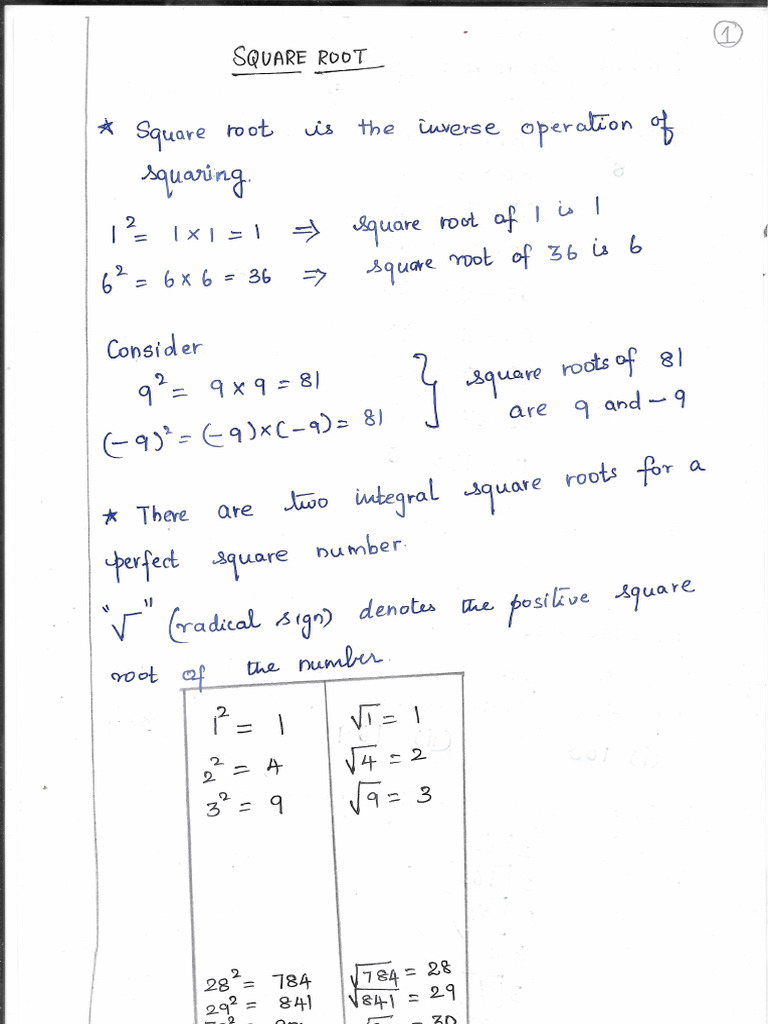 1
SQUARE ROOT
* Square root is the inverse operation of
squaring.
1² = 1 × 1 = 1 ⇒ square root of 1 is 1
6² = 6 × 6 = 36 ⇒ square root of 36 is 6
Consider
9² = 9 × 9 = 81 } square roots of 81
(-9)² = (-9)×(-9) = 81 are 9 and -9
* There are two integral square roots for a
perfect square number.
"√" (radical sign) denotes the positive square
root of the number.
1² = 1 √1 = 1
2² = 4 √4 = 2
3² = 9 √9 = 3
28² = 784 √784 = 28
29² = 841 √841 = 29
= 30